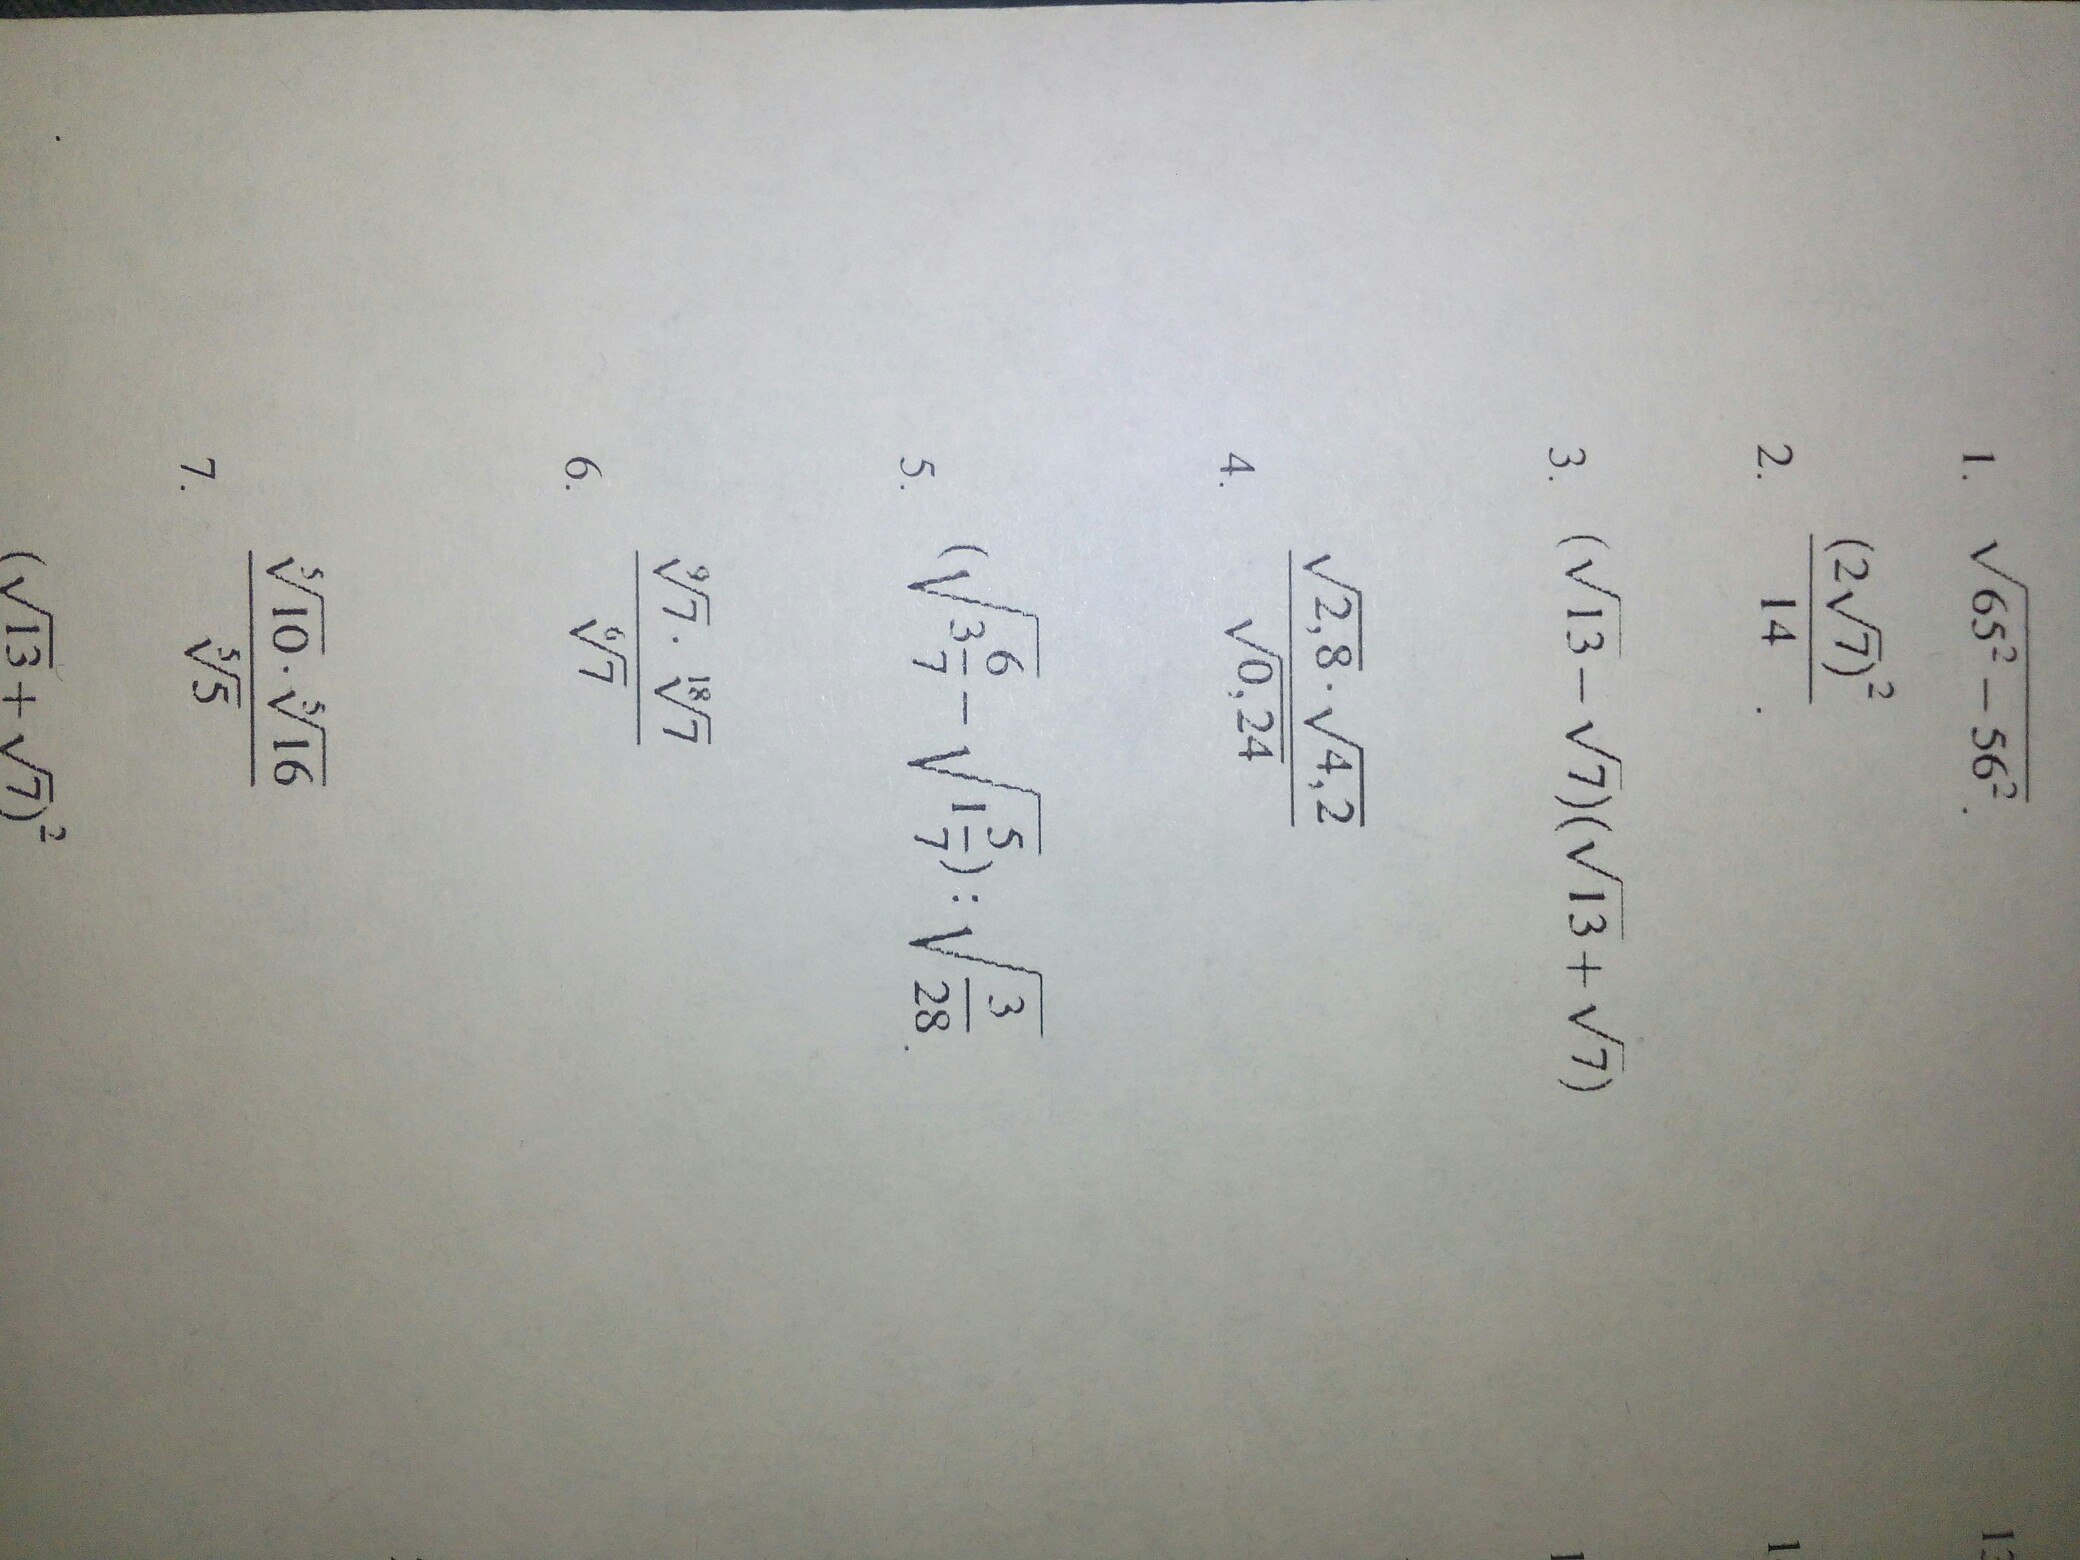 1. √(65² − 56²).
2. (2√7)² / 14.
3. (√13 − √7)(√13 + √7)
4. √2,8 · √4,2 / √0,24
5. (√(3 6/7) − √(1 5/7)) : √(3/28).
6. ⁹√7 · ¹⁸√7 / ⁶√7
7. ⁵√10 · ⁵√16 / ⁵√5
(√13 + √7)²